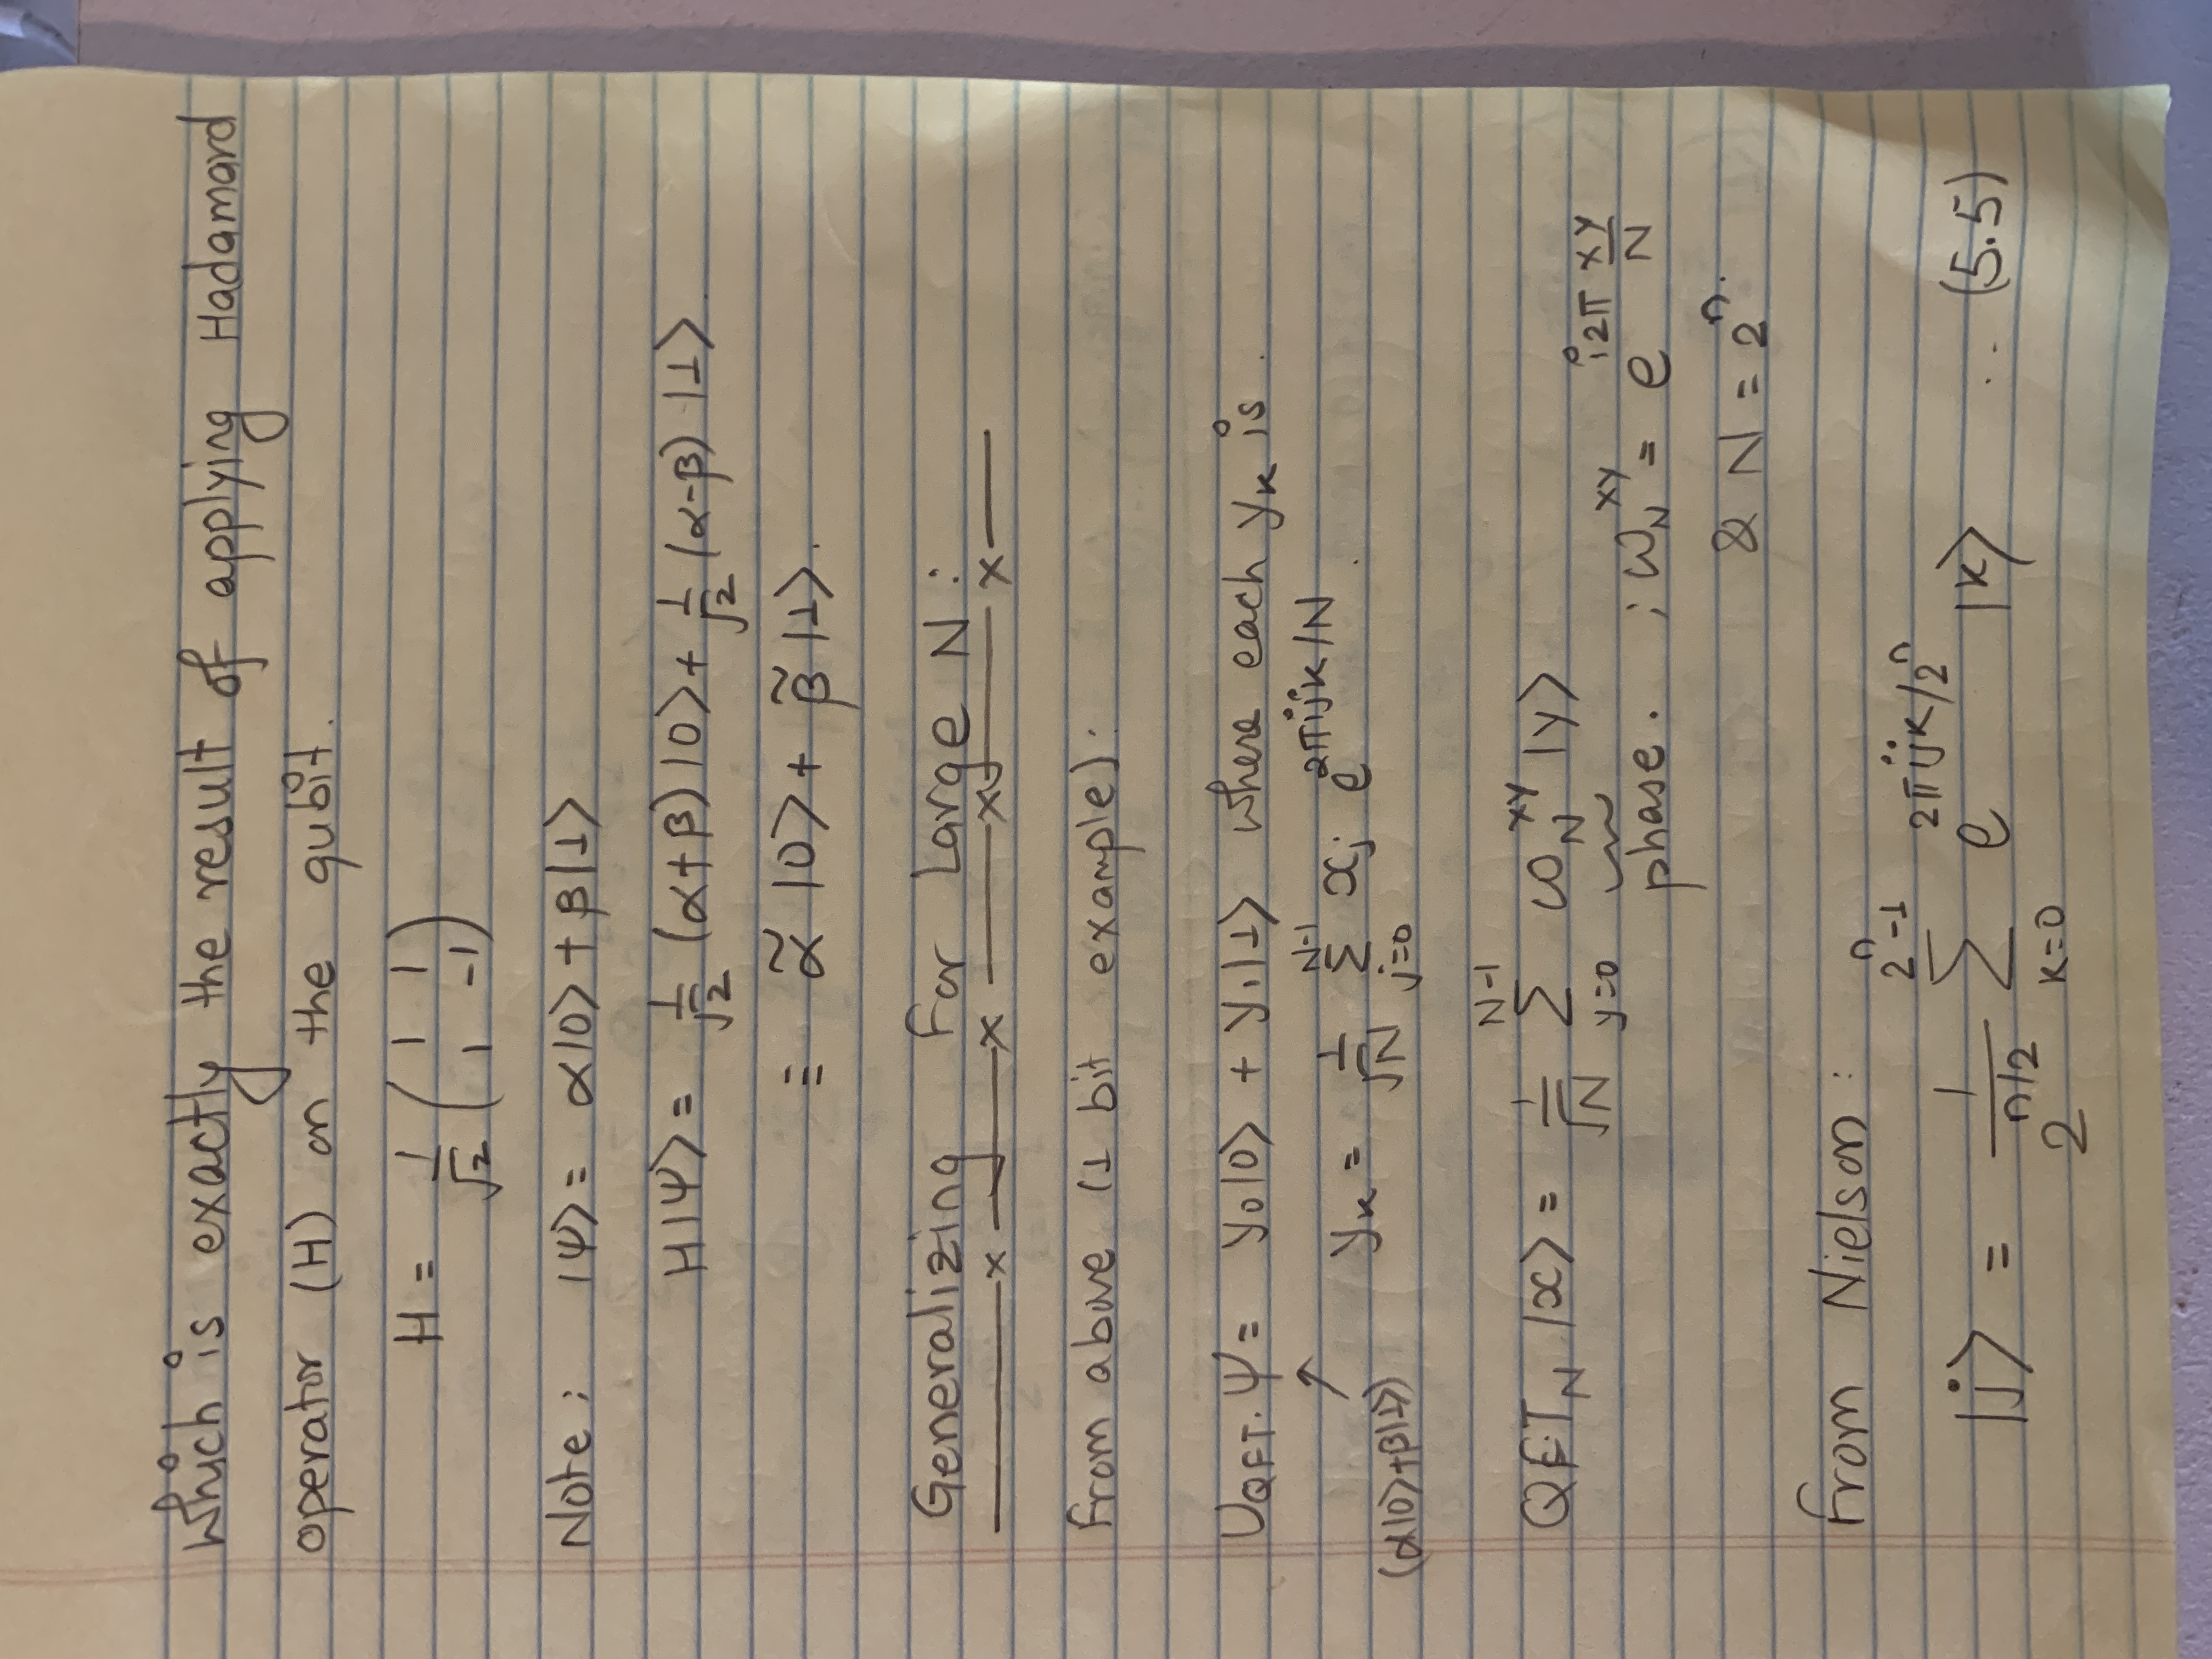 Which is exactly the result of applying Hadamard
operator (H) on the qubit.
H = 1/√2 ( 1 1 ; 1 -1 )
Note: |Ψ> = α|0> + β|1>
H|Ψ> = 1/√2 (α+β)|0> + 1/√2 (α-β) |1>.
≡ α̃ |0> + β̃ |1>.
Generalizing For Large N:
From above (1 bit example):
U_QFT. Ψ = y₀|0> + y₁|1> where each y_k is.
(α|0>+β|1>) ↗ y_k = 1/√N Σ_{j=0}^{N-1} x_j e^{2πijk/N}.
QFT_N |x> = 1/√N Σ_{y=0}^{N-1} ω_N^{xy} |y>
phase. ; ω_N^{xy} = e^{i2π xy/N}
& N = 2^n.
From Nielson:
|j> = 1/2^{n/2} Σ_{k=0}^{2^n-1} e^{2πijk/2^n} |k> .. (5.5)